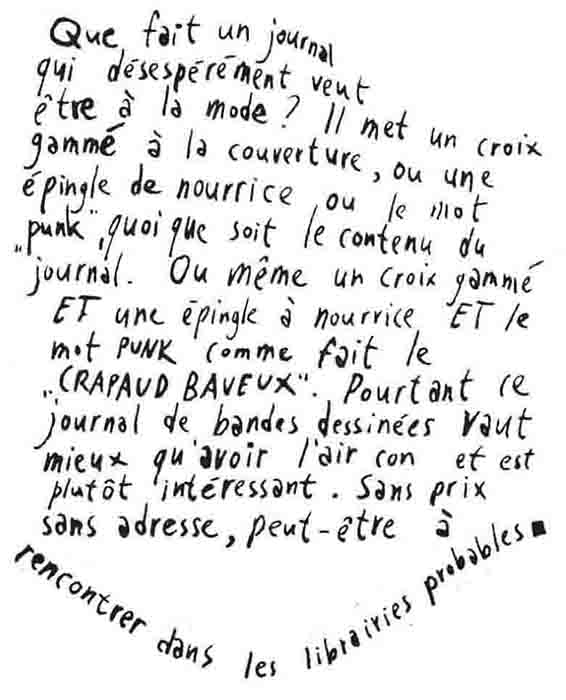 Que fait un journal
qui désespérément veut
être à la mode ? Il met un croix
gammé à la couverture, ou une
épingle de nourrice ou le mot
„punk“, quoi que soit le contenu du
journal. Ou même un croix gammé
ET une épingle à nourrice ET le
mot PUNK comme fait le
„CRAPAUD BAVEUX“. Pourtant ce
journal de bandes dessinées vaut
mieux qu'avoir l'air con et est
plutôt intéressant. Sans prix
sans adresse, peut-être à
rencontrer dans les librairies probables.